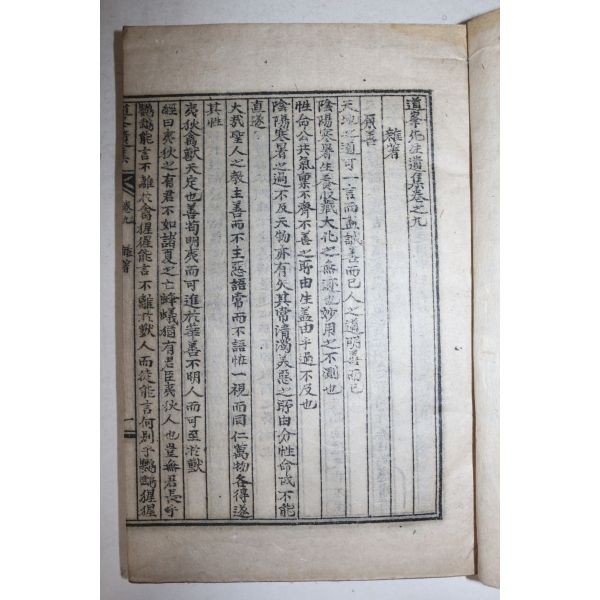 道峯先生遺集卷之九
雜著
原善
天地之道可一言而盡誠善而已人之道明善而已
陰陽寒暑生養收藏大化之無迹也妙用之不測也
性命公共氣稟不齊不善之所由生盖由乎過不及也
陰陽寒暑之過不及天物亦有失其常清濁美惡之所由分性命或不能
直遂
大哉聖人之敎主善而不主惡語常而不語恠一視而同仁萬物各得遂
其性
夷狄禽獸天定也善苟明夷而可進於華善不明人而可至於獸
經曰夷狄之有君不如諸夏之亡蜂蟻猶有君臣夷狄人也豈無君長乎
鸚鵡能言不離於禽猩猩能言不離於獸人而徒能言何別乎鸚鵡猩猩
卷九 雜著 一